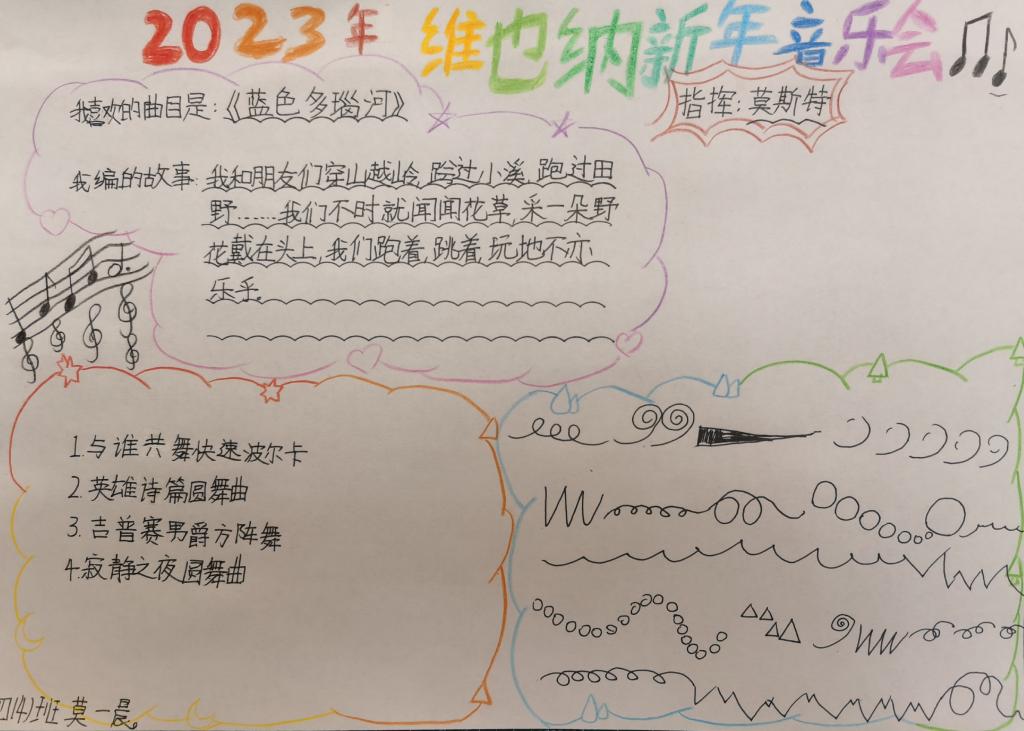 2023年 维也纳新年音乐会
指挥:莫斯特
我喜欢的曲目是:《蓝色多瑙河》
我编的故事:我和朋友们穿山越岭,跨过小溪,跑过田
野……我们不时就闻闻花草,采一朵野
花戴在头上,我们跑着,跳着,玩地不亦
乐乎。
1.与谁共舞快速波尔卡
2.英雄诗篇圆舞曲
3.吉普赛男爵方阵舞
4.寂静之夜圆舞曲
四(4)班 莫一晨。